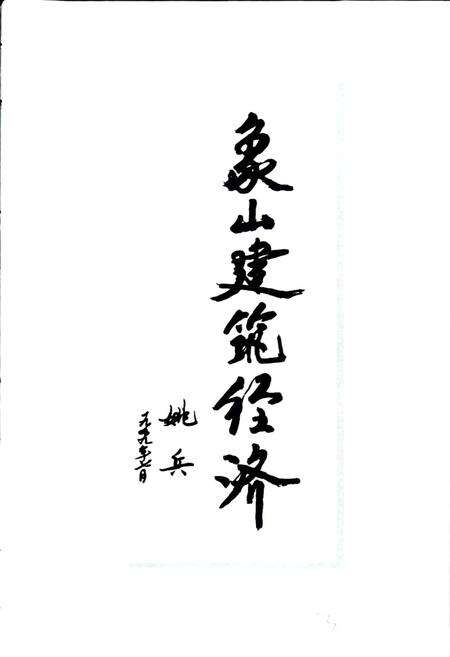 象山建筑经济
姚兵
一九九九年七月